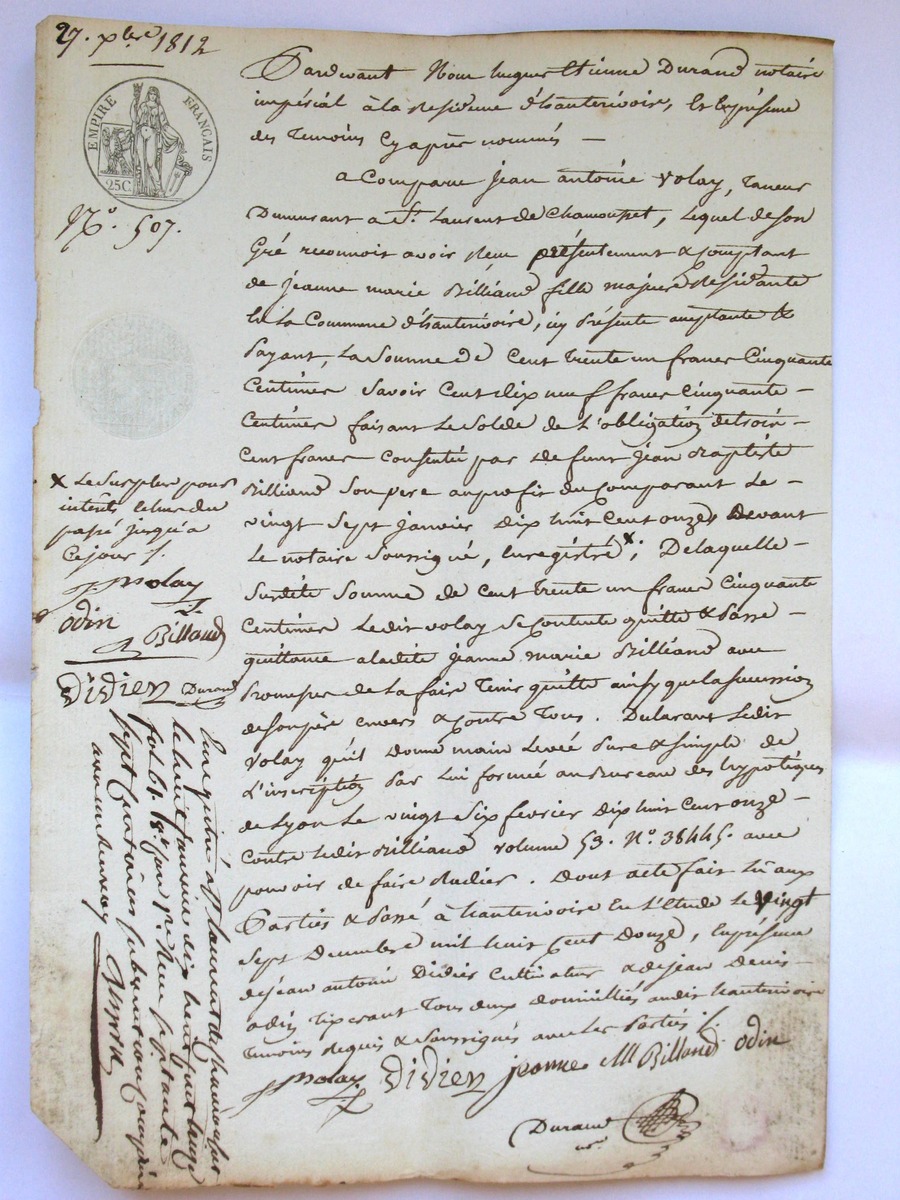 27. xbre 1812
EMPIRE FRANÇAIS
25C
N.o 507.
Pardevant Nous hugues Etienne Durand notaire
impérial à la Residence d'hauterivoire, En présence
des Temoins Cyaprès nommés —
a Comparu jean antoine Volay, Taneur
Demeurant a St. Laurent de Chamousset, lequel de son
Gré reconnoit avoir Reçu présentement & Comptant
de jeanne marie Billiand fille majeure Residante
En la Commune d'hauterivoire, icy présente acceptante &
Payant, La Somme de Cent Trente un francs Cinquante
Centimes Savoir Cent dix neuf francs Cinquante —
Centimes faisant Le Solde de L'obligation de trois —
Cent francs Consentie par defunt jean Baptiste
Billiand Son pere au profit du Comparant Le —
vingt Sept janvier Dix huit Cent onze Devant
Le notaire Soussigné, Enregistré x; De laquelle —
Susdite Somme de Cent Trente un francs Cinquante
Centimes Ledit Volay Se Contente quitte & Passe —
quittance a ladite jeanne marie Billiand avec
Promesse de La faire Tenir quitte ainsy que la succession
de son père envers & Contre Tous. Declarant Ledit
Volay qu'il Donne main Levée Pure & Simple de
L'inscription Par Lui formée au Bureau des hypotèques
de Lyon Le vingt Six fevrier Dix huit Cent onze —
Contre Ledit Billiand volume 53. No. 38445. avec
pouvoir de faire Radier. Dont acte fait Lu aux
Parties & Passé à hauterivoire En L'Etude Le Vingt
Sept Decembre mil huit Cent Douze, En présence
de jean antoine Didier Cultivateur & de jean Denis —
odin Tixerant Tous deux domiciliés audit hauterivoire
Temoins Requis & Soussignés avec Les Parties /.
Volay Didier jeanne M Billand odin
Durand
nre
x Le Surplus pour
intérêts Echus du
passé jusqu'a
Ce jour /.
Volay
odin Billand
Didier Durand
Enregistré à St Laurent de chamousset
le huit janvier dix huit cent treize
fol. 61.